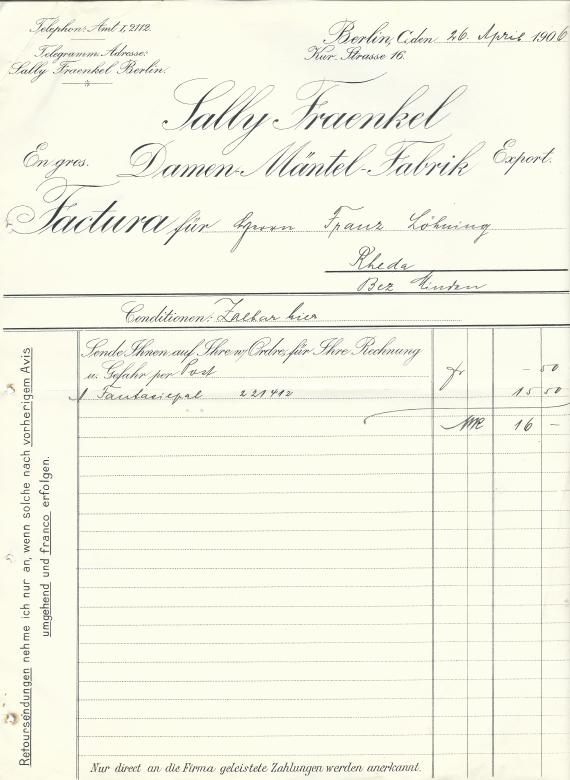 Telephon: Amt 1, 2112.
Telegramm-Adresse:
Sally Fraenkel Berlin.
Berlin, C. den 26. April 1906
Kur-Strasse 16.
Sally Fraenkel
En gros. Damen-Mäntel-Fabrik Export.
Factura für Herrn Franz Löhning
Rheda
Bez Minden
Conditionen: Zalbar hier
Sende Ihnen auf Ihre w/Ordre, für Ihre Rechnung
u. Gefahr per Post fr - 50
1 Fantasiepal 221412 15 50
MK 16 -
Retoursendungen nehme ich nur an, wenn solche nach vorherigem Avis
umgehend und franco erfolgen.
Nur direct an die Firma geleistete Zahlungen werden anerkannt.